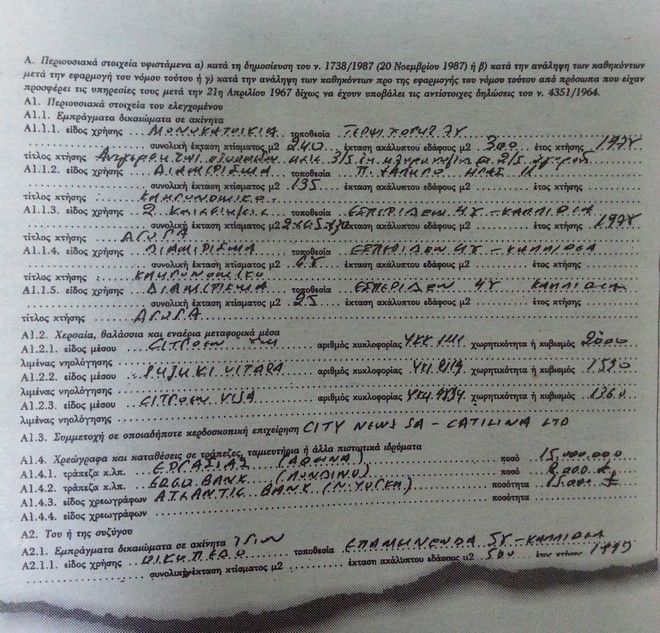 Α. Περιουσιακά στοιχεία υφιστάμενα α) κατά τη δημοσίευση του ν. 1738/1987 (20 Νοεμβρίου 1987) ή β) κατά την ανάληψη των καθηκόντων
μετά την εφαρμογή του νόμου τούτου ή γ) κατά την ανάληψη των καθηκόντων προ της εφαρμογής του νόμου τούτου από πρόσωπα που είχαν
προσφέρει τις υπηρεσίες τους μετά την 21η Απριλίου 1967 δίχως να έχουν υποβάλει τις αντίστοιχες δηλώσεις του ν. 4351/1964.
Α1. Περιουσιακά στοιχεία του ελεγχομένου
Α1.1. Εμπράγματα δικαιώματα σε ακίνητα
Α1.1.1. είδος χρήσης ΜΟΝΟΚΑΤΟΙΚΙΑ τοποθεσία
συνολική έκταση κτίσματος μ2 240 έκταση ακάλυπτου εδάφους μ2 300 έτος κτήσης 1978
τίτλος κτήσης
Α1.1.2. είδος χρήσης ΔΙΑΜΕΡΙΣΜΑ τοποθεσία Π. ΦΑΛΗΡΟ ΗΡΑΣ
συνολική έκταση κτίσματος μ2 135 έκταση ακάλυπτου εδάφους μ2 έτος κτήσης
τίτλος κτήσης ΚΛΗΡΟΝΟΜΙΚΟ
Α1.1.3. είδος χρήσης 2 τοποθεσία ΕΣΠΕΡΙΔΩΝ 48 - ΚΑΛΛΙΘΕΑ
συνολική έκταση κτίσματος μ2 έκταση ακάλυπτου εδάφους μ2 έτος κτήσης 1978
τίτλος κτήσης ΑΓΟΡΑ
Α1.1.4. είδος χρήσης ΔΙΑΜΕΡΙΣΜΑ τοποθεσία ΕΣΠΕΡΙΔΩΝ 48 - ΚΑΛΛΙΘΕΑ
συνολική έκταση κτίσματος μ2 έκταση ακάλυπτου εδάφους μ2 έτος κτήσης
τίτλος κτήσης ΚΛΗΡΟΝΟΜΙΚΟ
Α1.1.5. είδος χρήσης ΔΙΑΜΕΡΙΣΜΑ τοποθεσία ΕΣΠΕΡΙΔΩΝ 48 ΚΑΛΛΙΘΕΑ
συνολική έκταση κτίσματος μ2 25 έκταση ακάλυπτου εδάφους μ2 έτος κτήσης
τίτλος κτήσης ΑΓΟΡΑ
Α1.2. Χερσαία, θαλάσσια και εναέρια μεταφορικά μέσα
Α1.2.1. είδος μέσου CITROEN αριθμός κυκλοφορίας χωρητικότητα ή κυβισμός 2000
λιμένας νηολόγησης
Α1.2.2. είδος μέσου SUZUKI VITARA αριθμός κυκλοφορίας χωρητικότητα ή κυβισμός 1590
λιμένας νηολόγησης
Α1.2.3. είδος μέσου CITROEN VISA αριθμός κυκλοφορίας χωρητικότητα ή κυβισμός 1360
λιμένας νηολόγησης
Α1.3. Συμμετοχή σε οποιαδήποτε κερδοσκοπική επιχείρηση CITY NEWS SA - CATILINA LTD
Α1.4. Χρεώγραφα και καταθέσεις σε τράπεζες, ταμιευτήρια ή άλλα πιστωτικά ιδρύματα
Α1.4.1. τράπεζα κ.λπ. ΕΡΓΑΣΙΑΣ (ΑΘΗΝΑ) ποσό 15.000.000
Α1.4.2. τράπεζα κ.λπ. ERGOBANK (ΛΟΝΔΙΝΟ) ποσό
Α1.4.3. είδος χρεωγράφων ATLANTIC BANK (Ν. ΥΟΡΚΗ) ποσότητα
Α1.4.4. είδος χρεωγράφων ποσότητα
Α2. Του ή της συζύγου
Α2.1. Εμπράγματα δικαιώματα σε ακίνητα
Α2.1.1. είδος χρήσης ΟΙΚΟΠΕΔΟ τοποθεσία ΕΠΑΜΗΝΩΝΔΑ 58 - ΚΑΛΛΙΘΕΑ
συνολική έκταση κτίσματος μ2 έκταση ακάλυπτου εδάφους μ2 500 έτος κτήσης